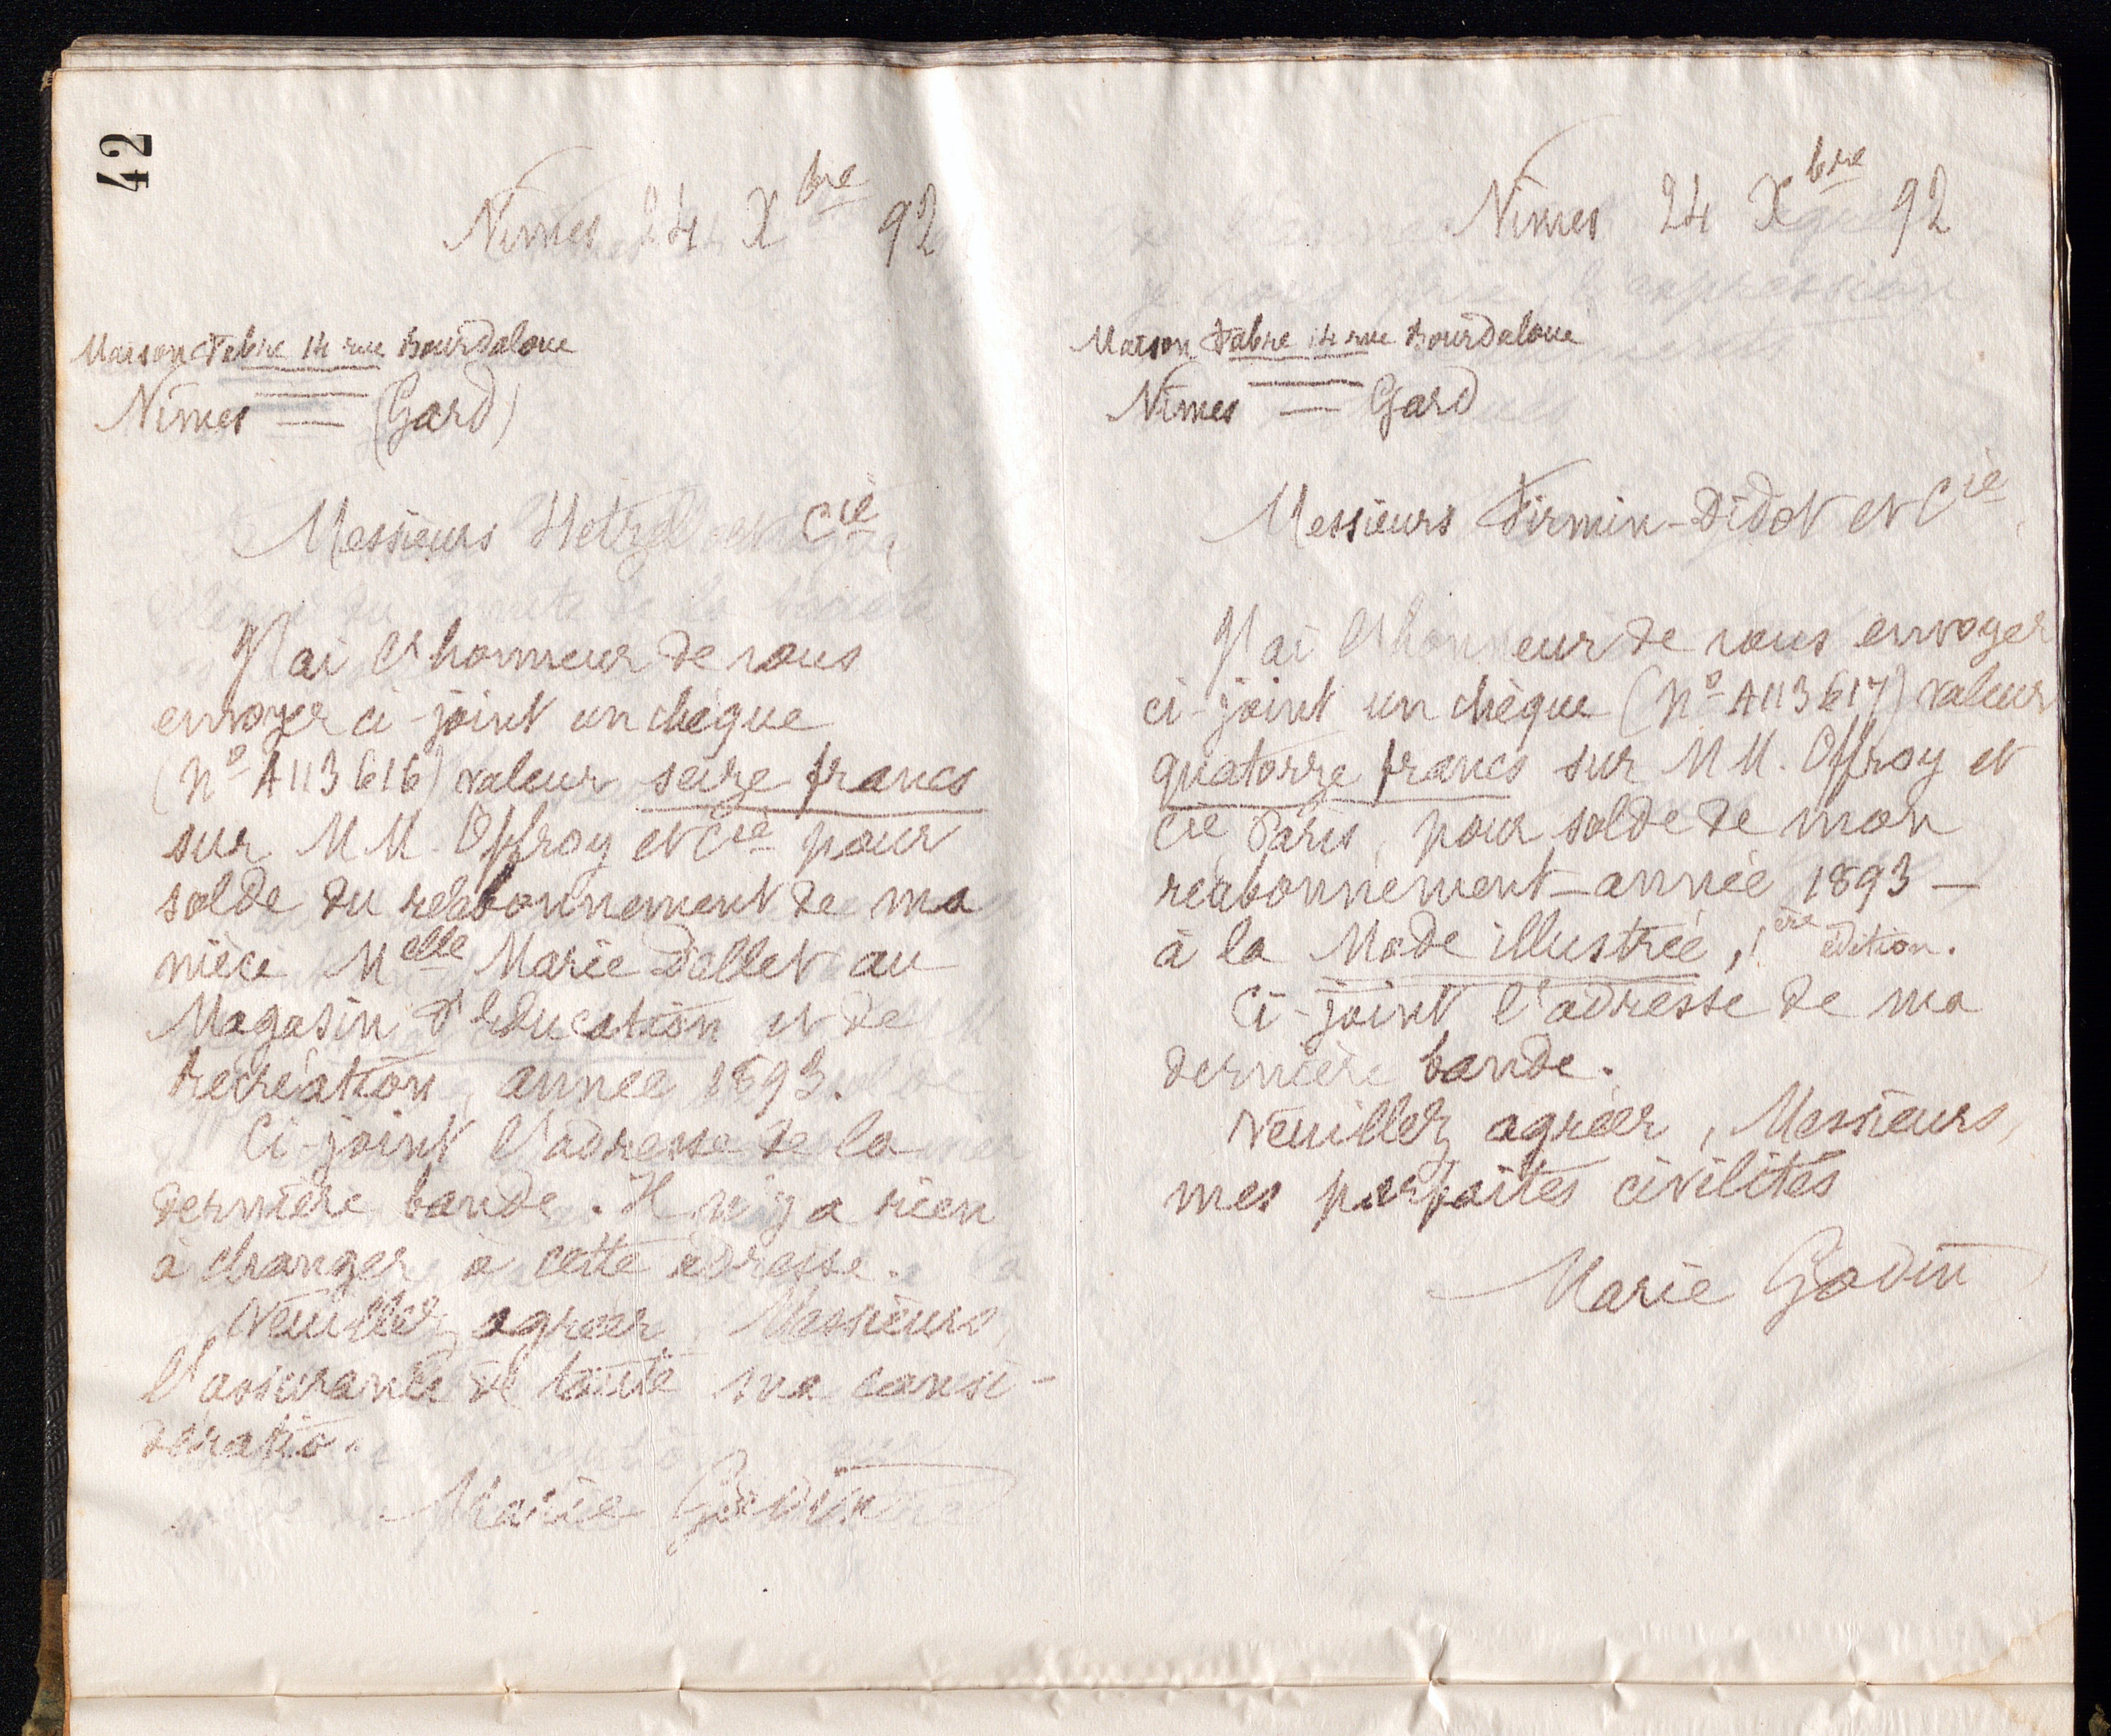 42
Nimes 24 Xbre 92
Maison Fabre 14 rue Bourdaloue
Nîmes — (Gard)
Messieurs Hetzel et Cie,
J'ai l'honneur de vous
envoyer ci-joint un chèque
(No A113616) valeur seize francs
sur MM. Offroy et Cie pour
solde du réabonnement de ma
nièce Melle Marie Dallet au
Magasin d'Education et de
récréation, année 1893.
Ci-joint l'adresse de la
dernière bande. Il n'y a rien
à changer à cette adresse.
Veuillez agréer, Messieurs,
l'assurance de toute ma consi-
dération.
Marie Godin
Nîmes 24 Xbre 92
Maison Fabre 14 rue Bourdaloue
Nîmes — Gard
Messieurs Firmin-Didot et Cie,
J'ai l'honneur de vous envoyer
ci-joint un chèque (No A113617) valeur
quatorze francs sur MM. Offroy et
Cie Paris, pour solde de mon
réabonnement — année 1893 —
à la Mode illustrée, 1ère édition.
Ci-joint l'adresse de ma
dernière bande.
Veuillez agréer, Messieurs,
mes parfaites civilités
Marie Godin